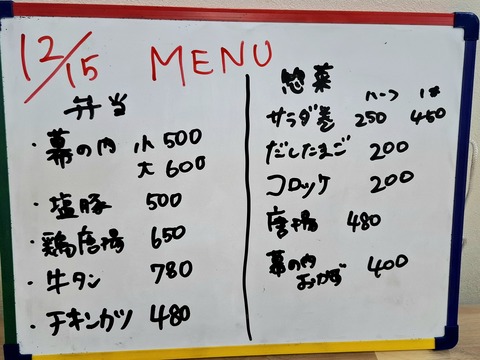 12/15 MENU
弁当
・幕の内 小 500
大 600
・塩豚 500
・鶏唐揚 650
・牛タン 780
・チキンカツ 480
惣菜
ハーフ 1本
サラダ巻 250 450
だしたまご 200
コロッケ 200
唐揚 480
幕の内
おかず 400